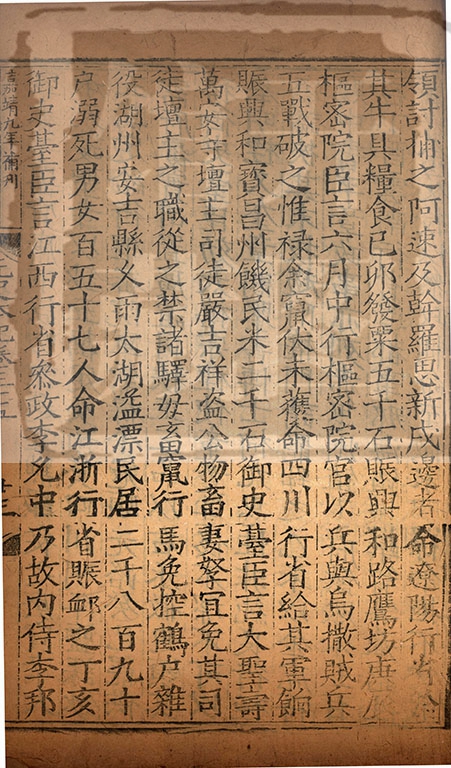 領討捕之阿速及斡羅思新戍邊者命遼陽行省給
其牛具糧食己卯發粟五千石賑興和路鷹坊庚辰
樞密院臣言六月中行樞密院官以兵與烏撒賊兵
五戰破之惟祿余竄伏未獲命四川行省給其軍餉
賑興和寶昌州饑民米二千石御史臺臣言大聖壽
萬安寺壇主司徒嚴吉祥盜公物畜妻孥宜免其司
徒壇主之職從之禁諸驛毋畜竄行馬免控鶴户雜
役湖州安吉縣久雨太湖溢漂民居二千八百九十
户溺死男女百五十七人命江浙行省賑䘏之丁亥
御史臺臣言江西行省叅政李允中乃故内侍李邦
嘉靖九年補刊